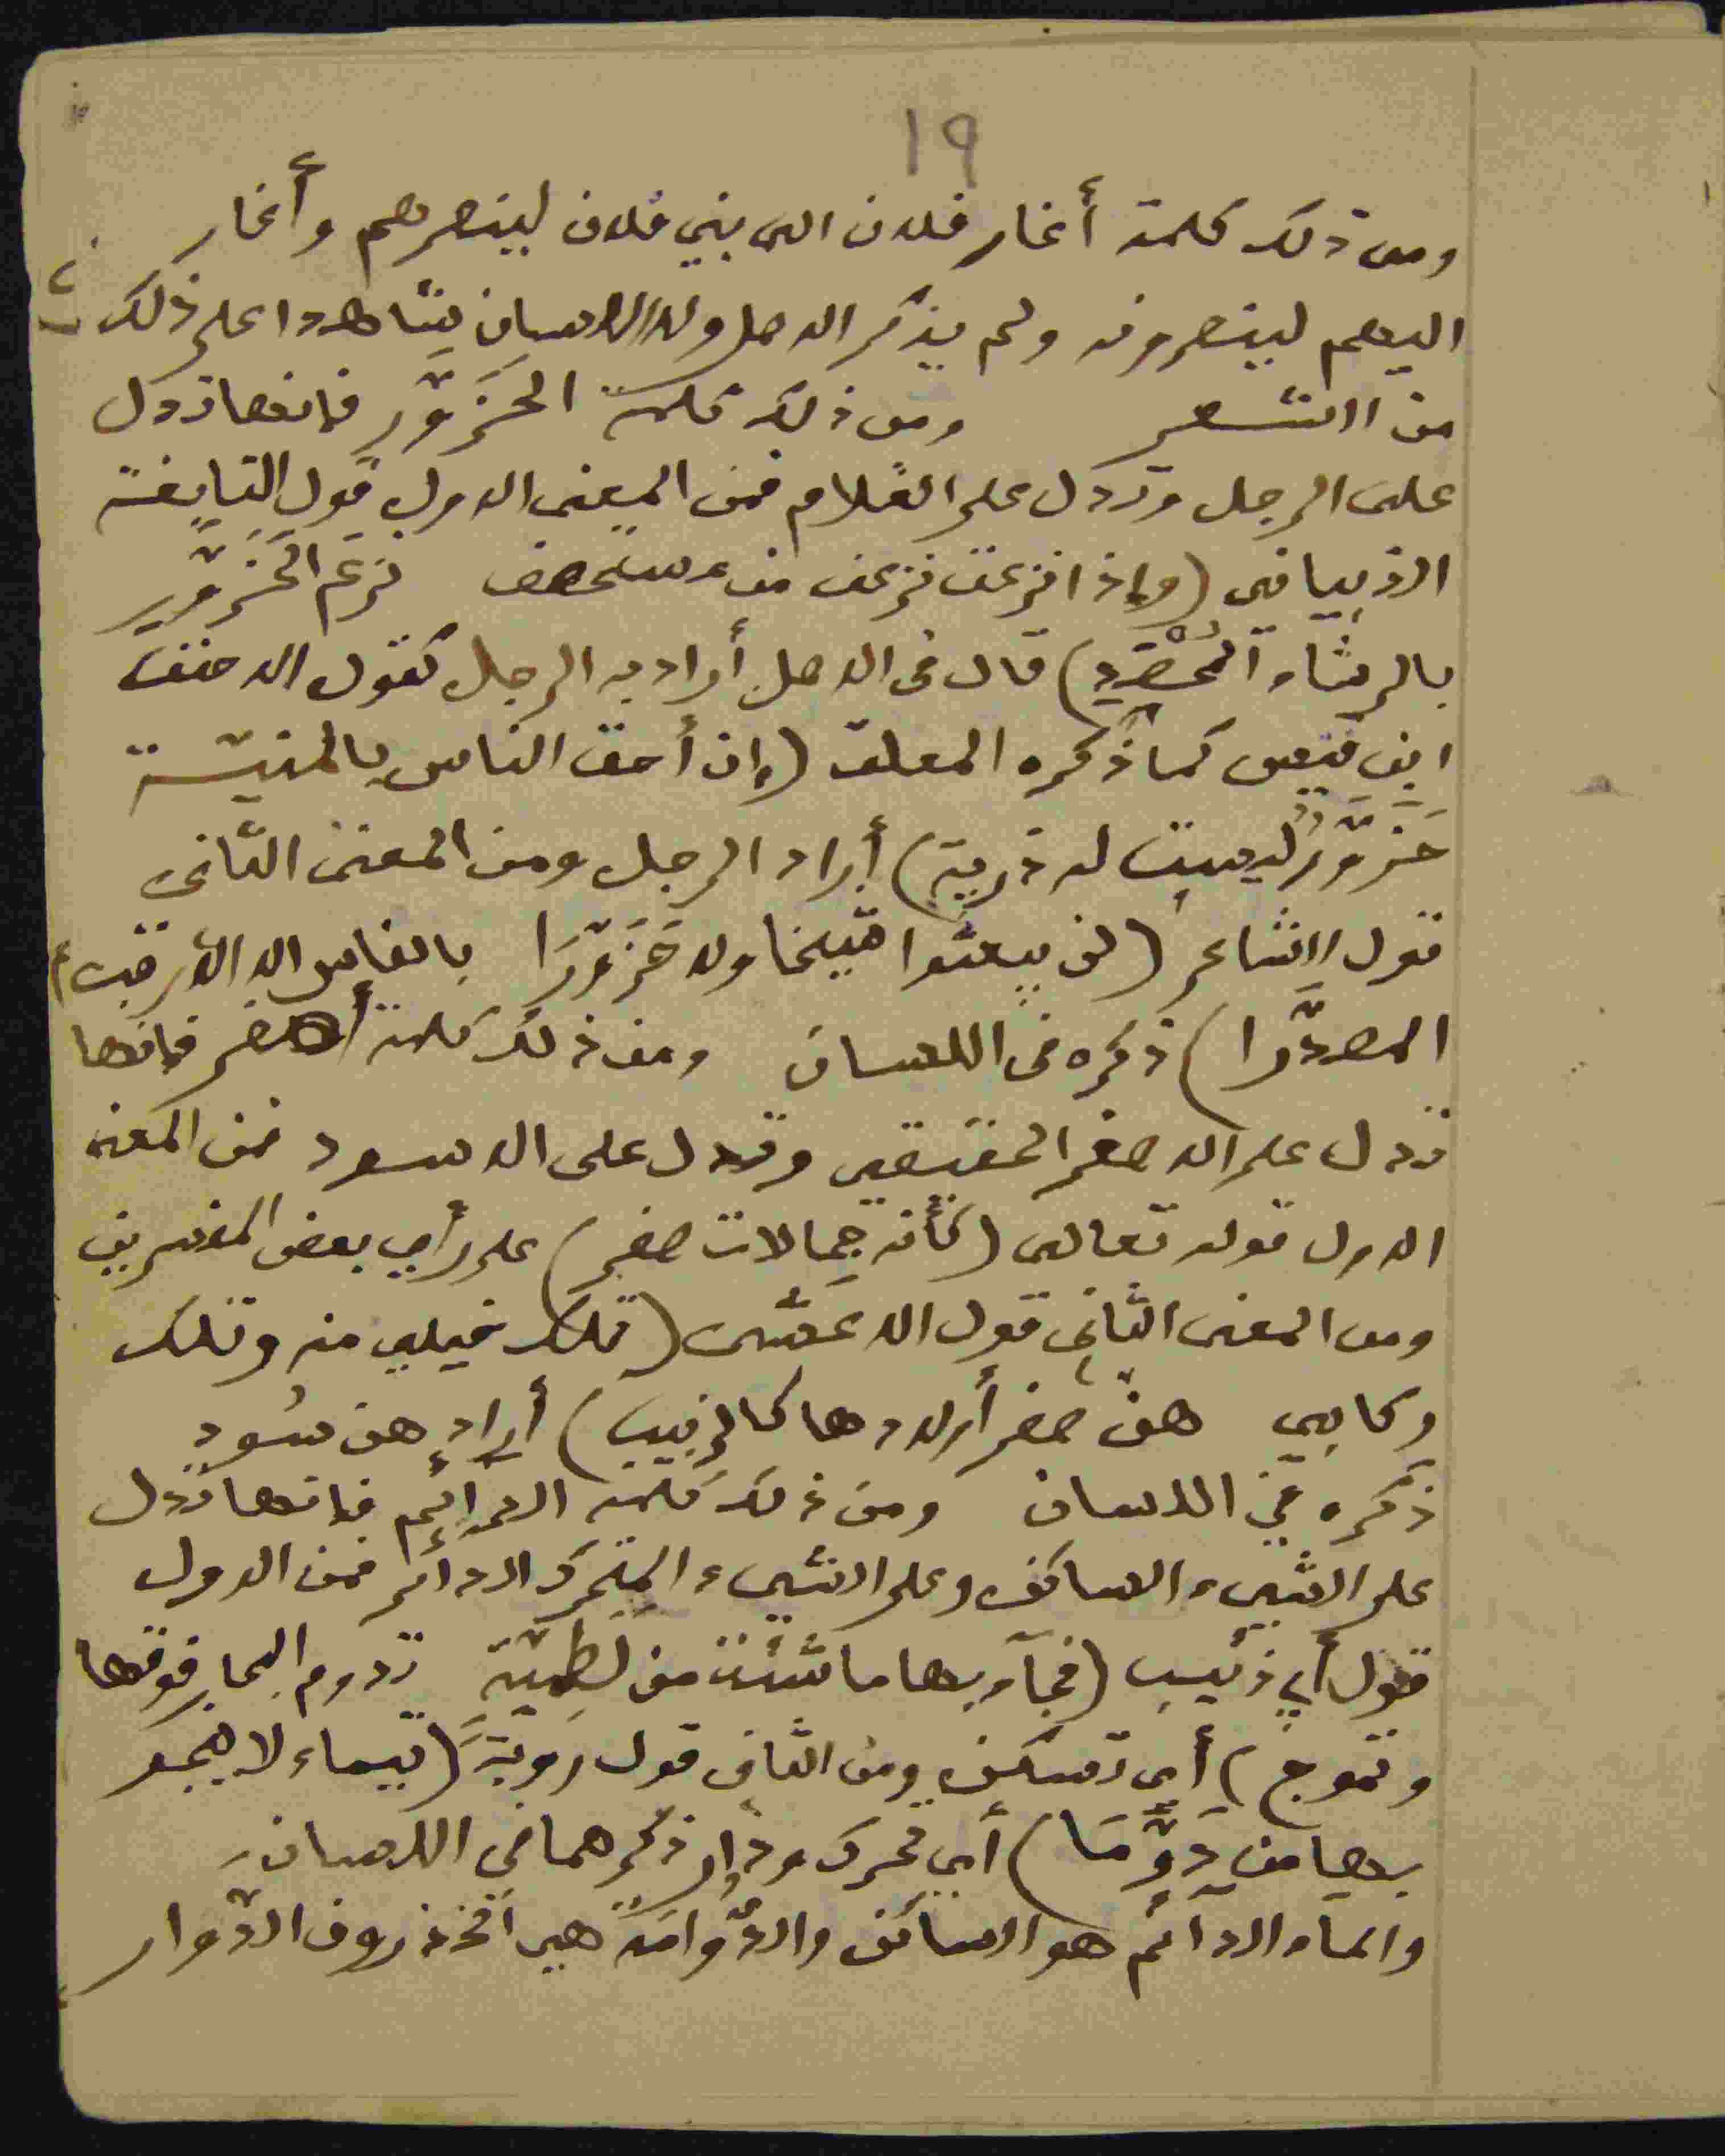 ١٩
ومن ذلك كلمة أغار فلان الى بني فلان لينصرهم وأغار
اليهم لينصروه ولم يذكر الاصل ولا اللسان شاهدا على ذلك
من الشعر ومن ذلك كلمة الحَزَوَّر فانها تدل
على الرجل وتدل على الغلام فمن المعنى الاول قول النابغة
الذبياني (وإذا نزعت نزعت من مستحصف نزع الحَزَوَّر
بالرشاء المُحْصَدِ) قال في الاصل أراد به الرجل كقول الاحنف
ابن قيس كما ذكره المعلق (إن أحق الناس بالمنيّة
حَزَوَّرٌ ليست له ذرية) أراد الرجل ومن المعنى الثاني
قول الشاعر (لن يبعثوا شيخا ولا حَزَوَّرَا بالفاس الا الأرقب
المصدَّرا) ذكره في اللسان ومن ذلك كلمة أصفر فانها
تدل على الاصفر الحقيقي وتدل على الاسود فمن المعنى
الاول قوله تعالى (كأنه جِمالات صفر) على رأي بعض المفسرين
ومن المعنى الثاني قول الاعشى (تلك خيلي منه وتلك
ركابي هنّ صفر أولادها كالزبيب) أراد هن سُود
ذكره في اللسان ومن ذلك كلمة الدائم فانها تدل
على الشيء الساكن وعلى الشيء المتحرك الدائر فمن الاول
قول أبي ذئيب (فجآء بها ما شئت من لَطَمِيَّةٍ تدوم البحار فوقها
وتموج) أي تسكن ومن الثاني قول رؤبة (تيماء لا ينجو
بها من دَوَّمَا) أي تحرك ودار ذكرهما في اللسان
والماء الدآئم هو الساكن والدُّوامَة هي الخذروف الدوّار